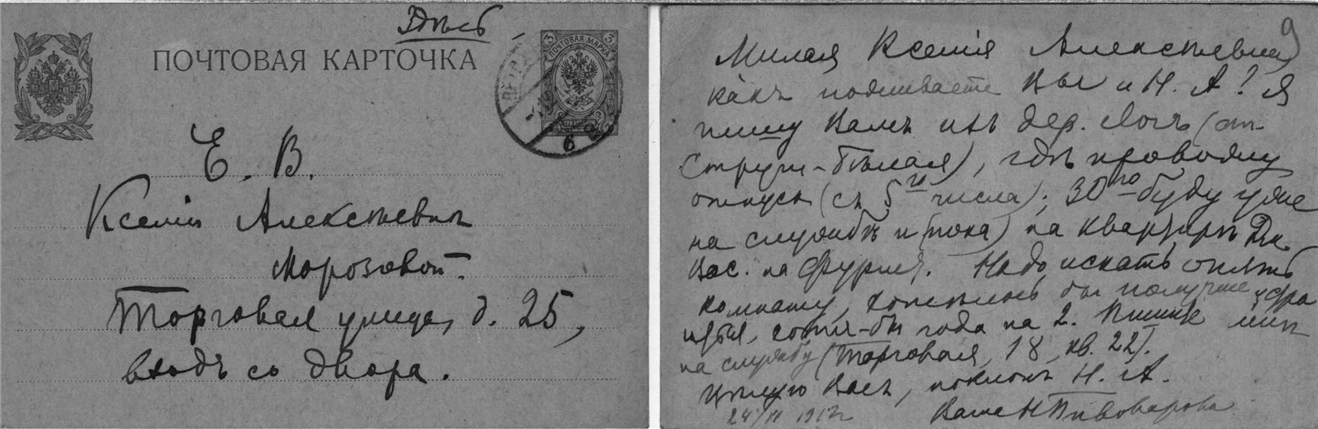 Здѣсь
ПОЧТОВАЯ КАРТОЧКА
3 ПОЧТОВАЯ МАРКА 3
6
Е. В.
Ксеніи Алексѣевнѣ
Морозовой.
Торговая улица, д. 25,
входъ со двора.
9
Милая Ксенія Алексѣевна,
какъ поживаете Вы и Н. А? Я
пишу Вамъ изъ дер. Логъ (ст.
Струги-Бѣлая), гдѣ провожу
отпускъ (съ 5го числа); 30го буду уже
на службѣ и (пока) на квартирѣ
Вас. на Фуршт. Надо искать опять
комнату, хотѣлось бы получше
хотя-бы года на 2. Пишите мнѣ
на службу (Торговая, 18, кв. 22).
Цѣлую Васъ, поклонъ Н. А.
Ваша Н Пивоварова